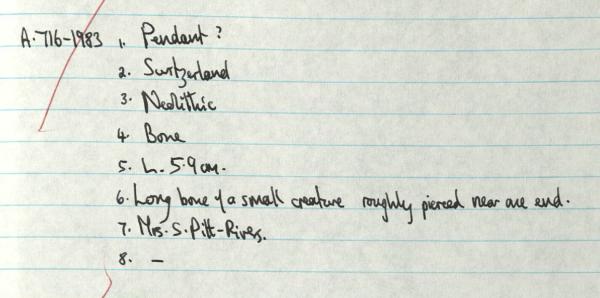 A·716-1983 1. Pendant?
2. Switzerland
3. Neolithic
4. Bone
5. L. 5·9 cm.
6. Long bone of a small creature roughly pierced near one end.
7. Mrs. S. Pitt-Rivers.
8. –